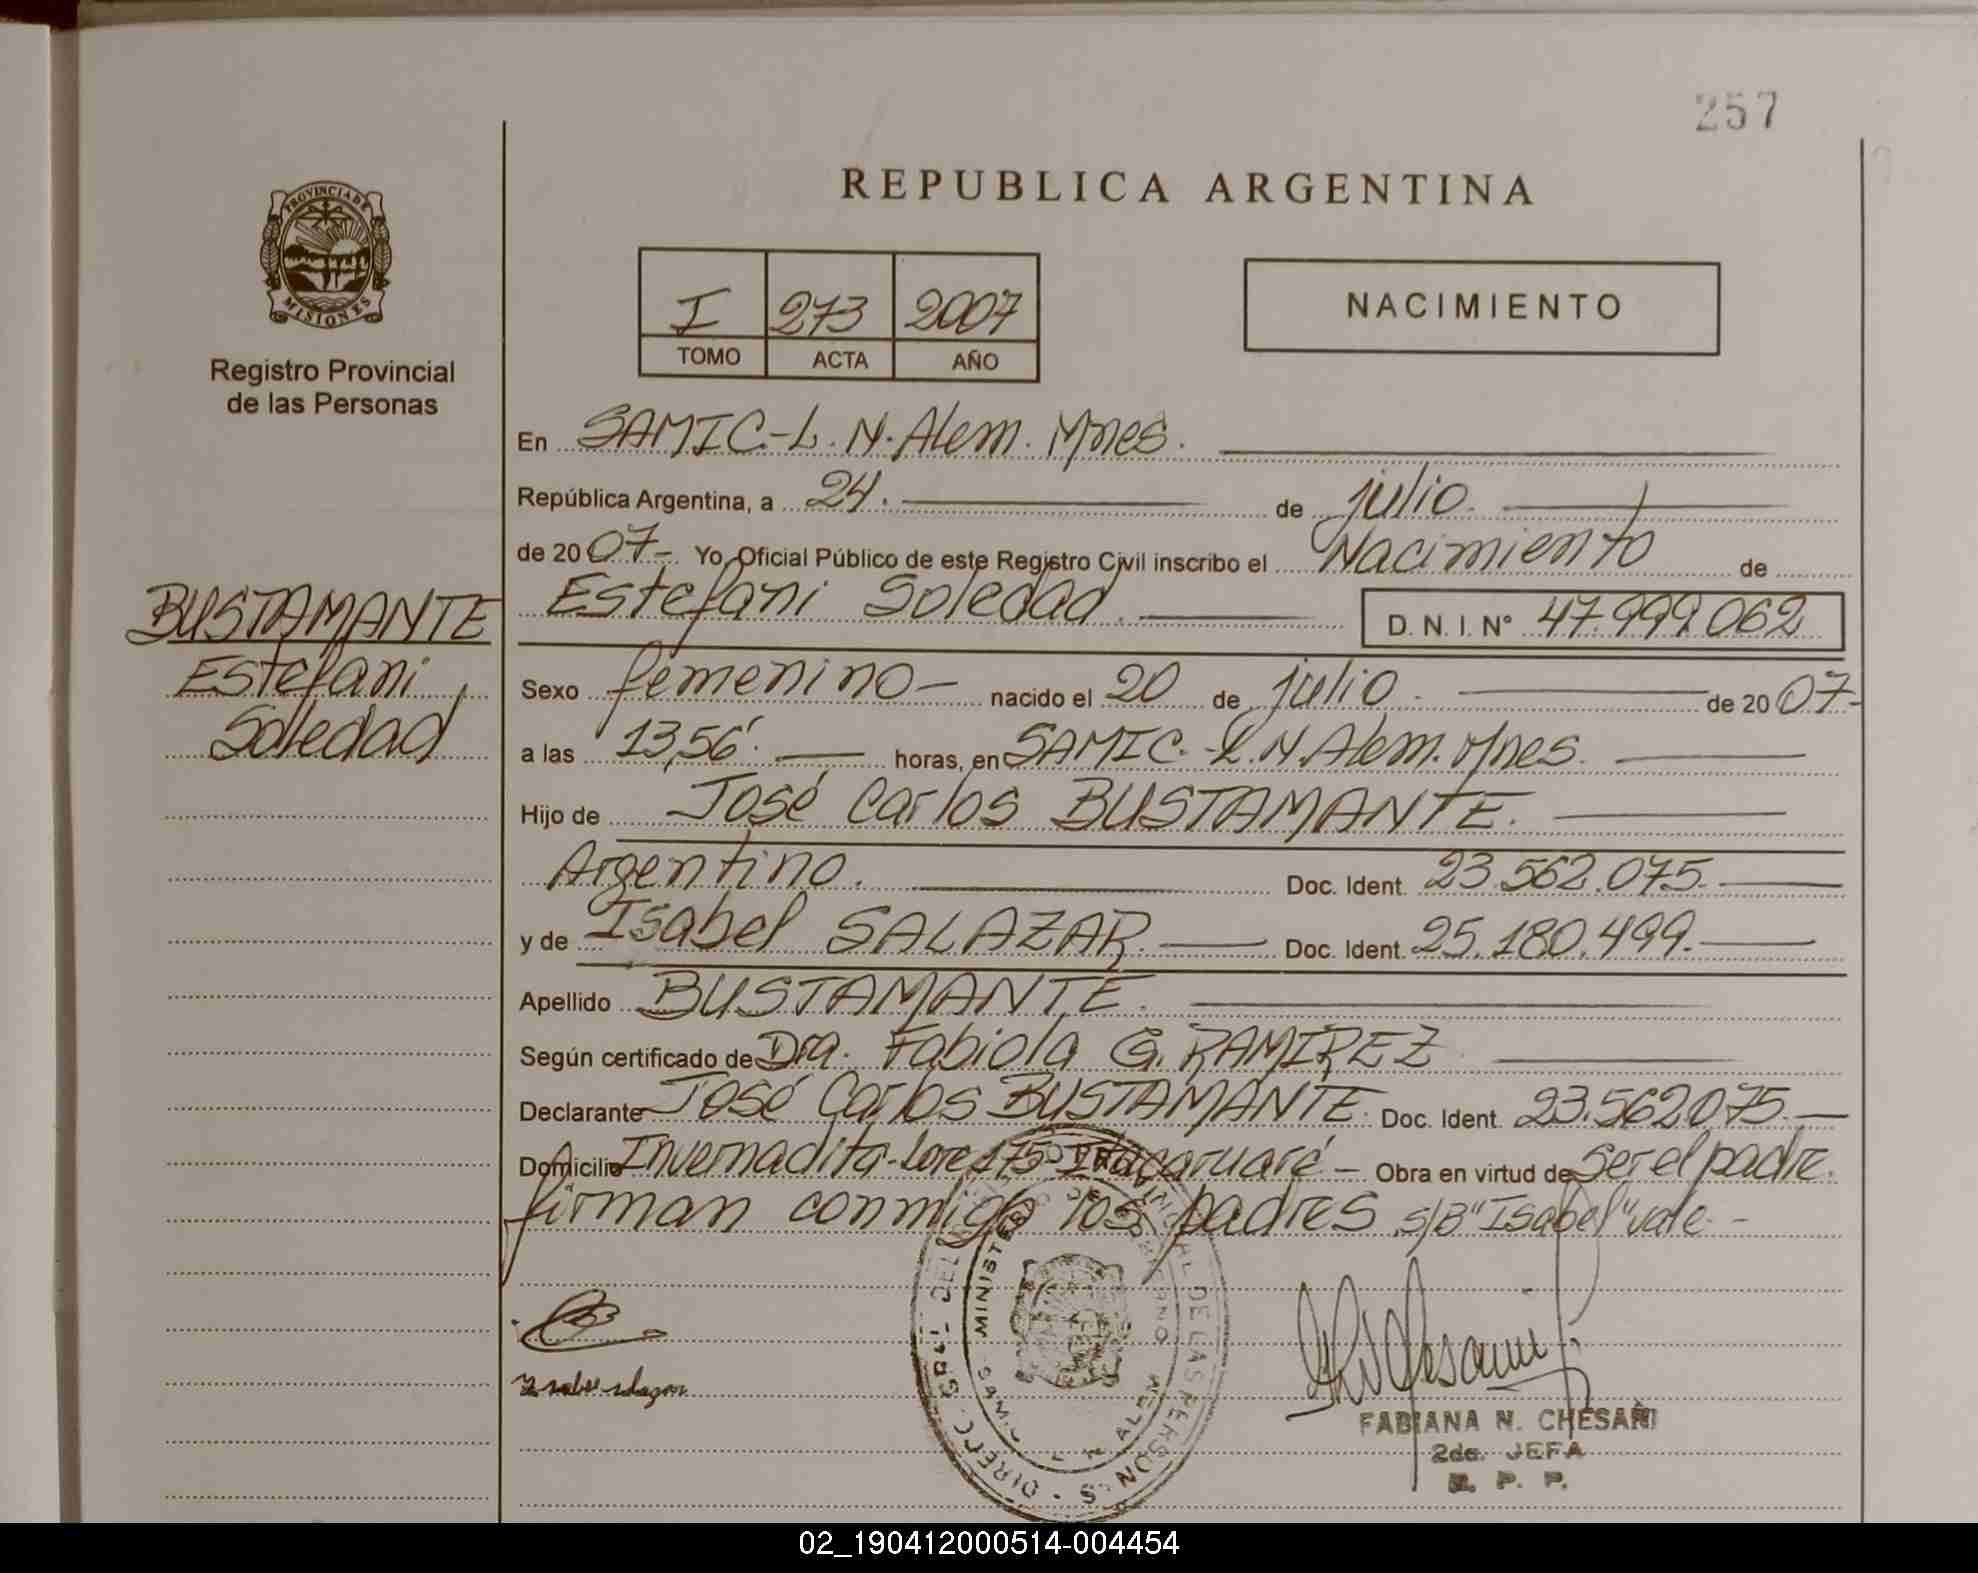 257
REPUBLICA ARGENTINA
PROVINCIA DE
MISIONES
Registro Provincial
de las Personas
I 273 2007
TOMO ACTA AÑO
NACIMIENTO
En SAMIC-L.N.Alem. Mnes.
República Argentina, a 24. de julio.
de 2007- Yo, Oficial Público de este Registro Civil inscribo el Nacimiento de
Estefani Soledad. D. N. I. N° 47.999.062
BUSTAMANTE
Estefani,
Soledad
Sexo femenino- nacido el 20 de julio. de 2007-
a las 13,56'. horas, en SAMIC.-L.N.Alem. Mnes.
Hijo de José Carlos BUSTAMANTE.
Argentino. Doc. Ident. 23.562.075.
y de Isabel SALAZAR. Doc. Ident. 25.180.499.
Apellido BUSTAMANTE.
Según certificado de Dra. Fabiola G. RAMIREZ.
Declarante José Carlos BUSTAMANTE. Doc. Ident. 23.562.075.
Domicilio Invernadita-Lote 175- Itacaruaré- Obra en virtud de Ser el padre.
firman conmigo los padres s/B "Isabel" vale.-
MINISTERIO DE GOBIERNO
SAMIC L N ALEM
FABIANA N. CHESAÑI
2da. JEFA
R. P. P.
02_190412000514-004454